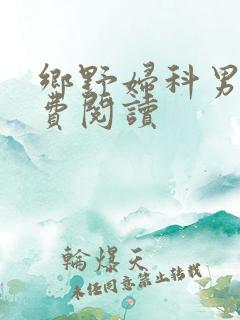 鄉野婦科男
費閱讀
輪爆天
未经同意禁止转载